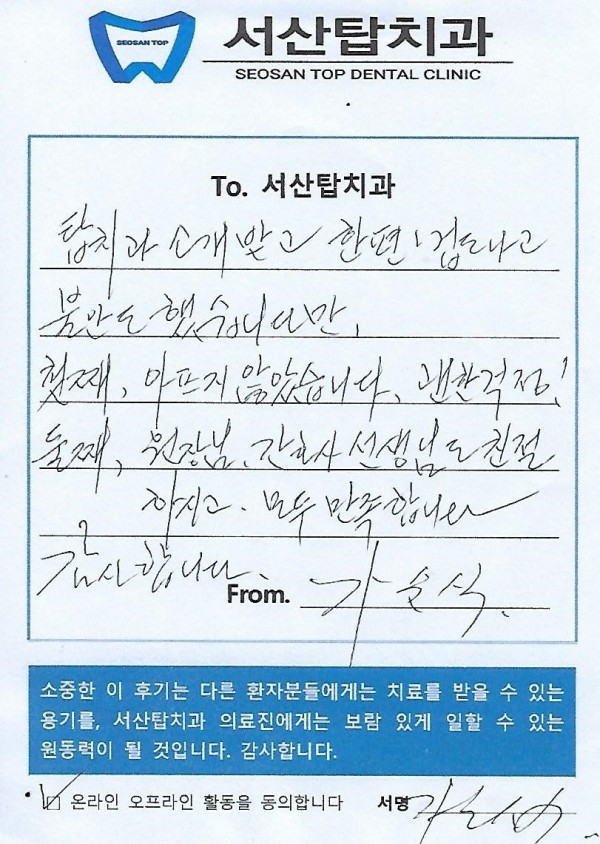 SEOSAN TOP
서산탑치과
SEOSAN TOP DENTAL CLINIC
To. 서산탑치과
탑치과 소개 받고 한편, 겁도나고
불안도 했습니다만,
첫째, 아프지 않았습니다. 괜한걱정!
둘째, 원장님, 간호사 선생님도 친절
하시고. 모두 만족합니다
감사합니다.
From. 가순식.
소중한 이 후기는 다른 환자분들에게는 치료를 받을 수 있는
용기를, 서산탑치과 의료진에게는 보람 있게 일할 수 있는
원동력이 될 것입니다. 감사합니다.
온라인 오프라인 활동을 동의합니다 서명